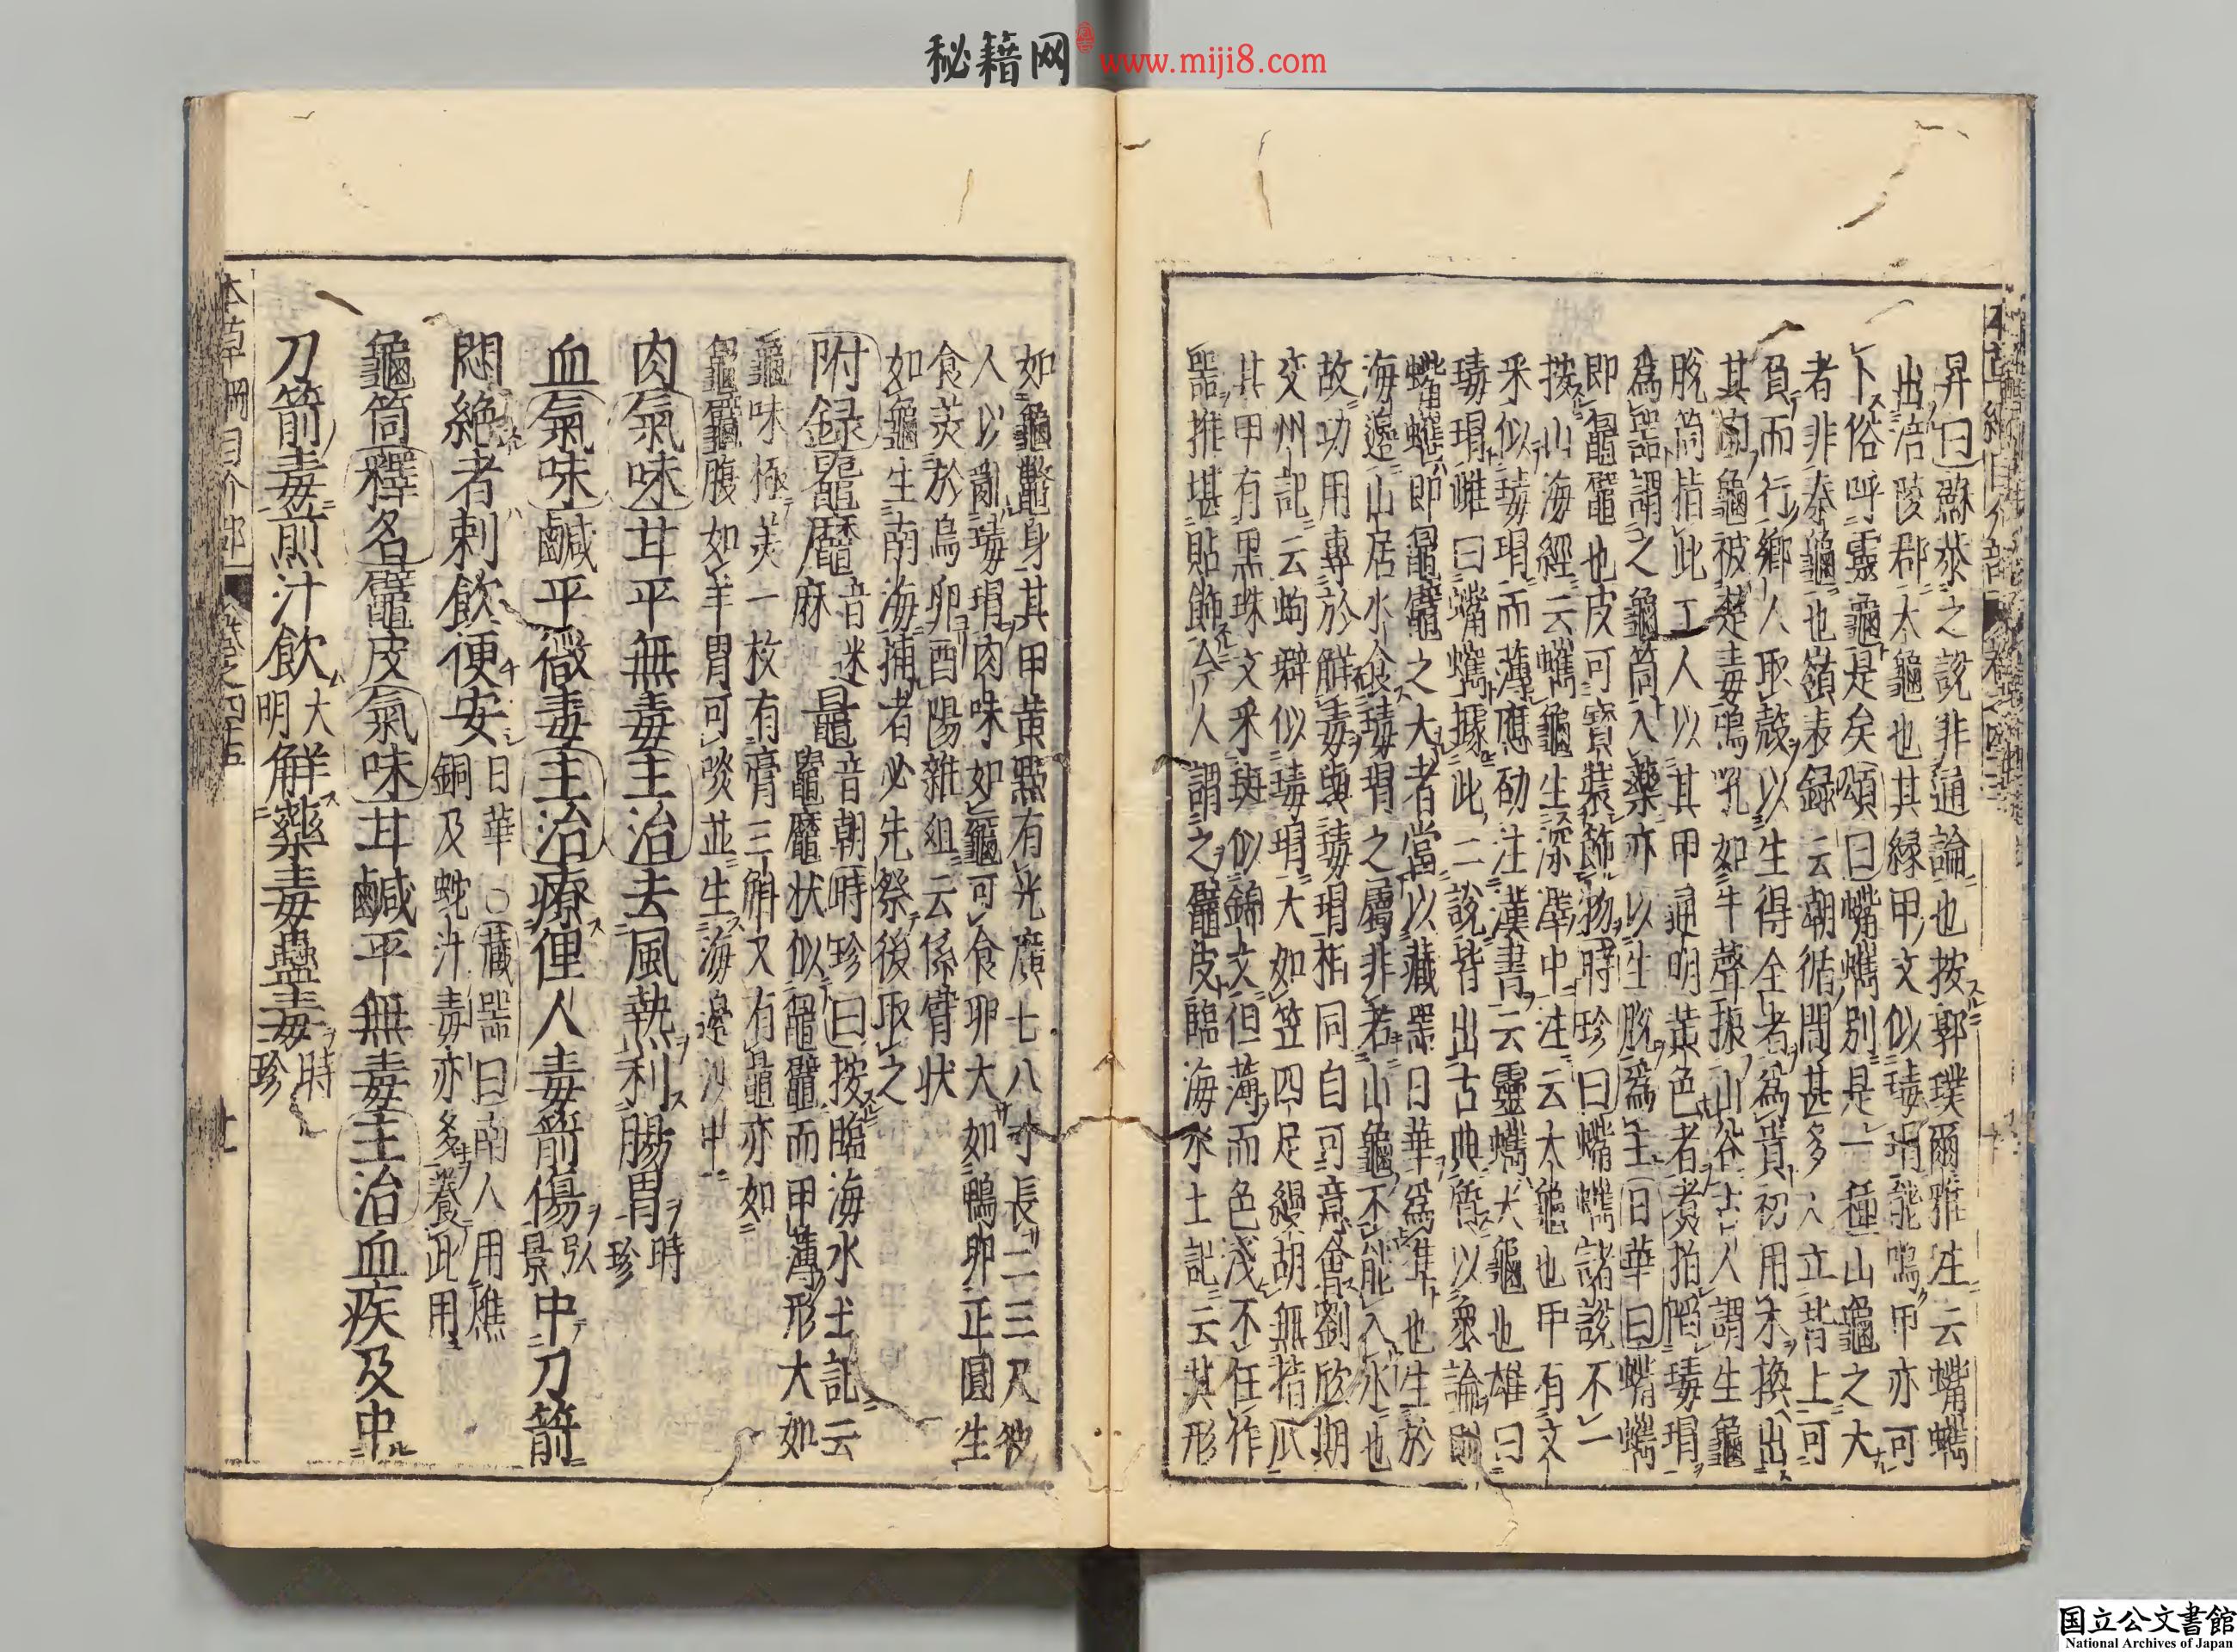 秘籍网 www.miji8.com
昇曰蘇恭之說非通論也按郭璞爾雅注云蠵蠵
出涪陵郡大龜也其緣甲文似瑇瑁能鳴甲亦可
卜俗呼靈龜是矣頌曰蠵別是一種山龜之大
者非秦龜也嶺表録云潮循間甚多人立背上可
負而行鄉人取殼以生得全者為貴初用木換出
其肉龜被楚毒鳴吼如牛聲振山谷古人謂生龜
脫筒指此工人以其甲通明黃色者煮拍陷瑇瑁
為器謂之龜筒入藥亦以生脫為上日華曰蠵
即鼊也皮可寶裝飾物時珍曰蠵諸說不一
按山海經云蠵龜生深澤中注云大龜也甲有文
釆似瑇瑁而薄應劭注漢書云靈蠵大龜也雄曰
瑇瑁雌曰蠵據此二說皆出古典質以眾論則
蠵即鼊之大者當以藏器日華為準也生於
海邊山居水食瑇瑁之屬非若山龜不能入水也
故功用專於解毒與瑇瑁相同自可意會劉欣期
交州記云蚼似瑇瑁大如笠四足縵胡無指爪
其甲有黑珠文釆斑似錦文但薄而色淺不任作
器推堪貼飾今人謂之鼊皮臨海水土記云其形
如龜鼈身其甲黄點有光廣七八寸長二三尺彼
人以亂瑇瑁肉味如黿可食卵大如鴨卵正圓生
食美於鳥卵酉陽雜俎云係臂状
如龜生南海捕者必先祭後取之
附録 音迷麻 鼂音朝時珍曰按臨海水土記云
状似鼊而甲薄形大如
龜味極美一枚有膏三斛又有鼂亦如
腹如羊胃可啖並生海邊沙中
肉氣味甘平無毒主治去風熱利腸胃時珍
血氣味鹹平微毒主治療俚人毒箭傷弘景中刀箭
悶絕者刺飲便安日華○藏器曰南人用燋
銅及蛇汁毒亦多養此用
龜筒釋名鼊皮氣味甘鹹平無毒主治血疾及中
刀箭毒煎汁飲大明解藥毒蠱毒時珍
国立公文書館
National Archives of Japan